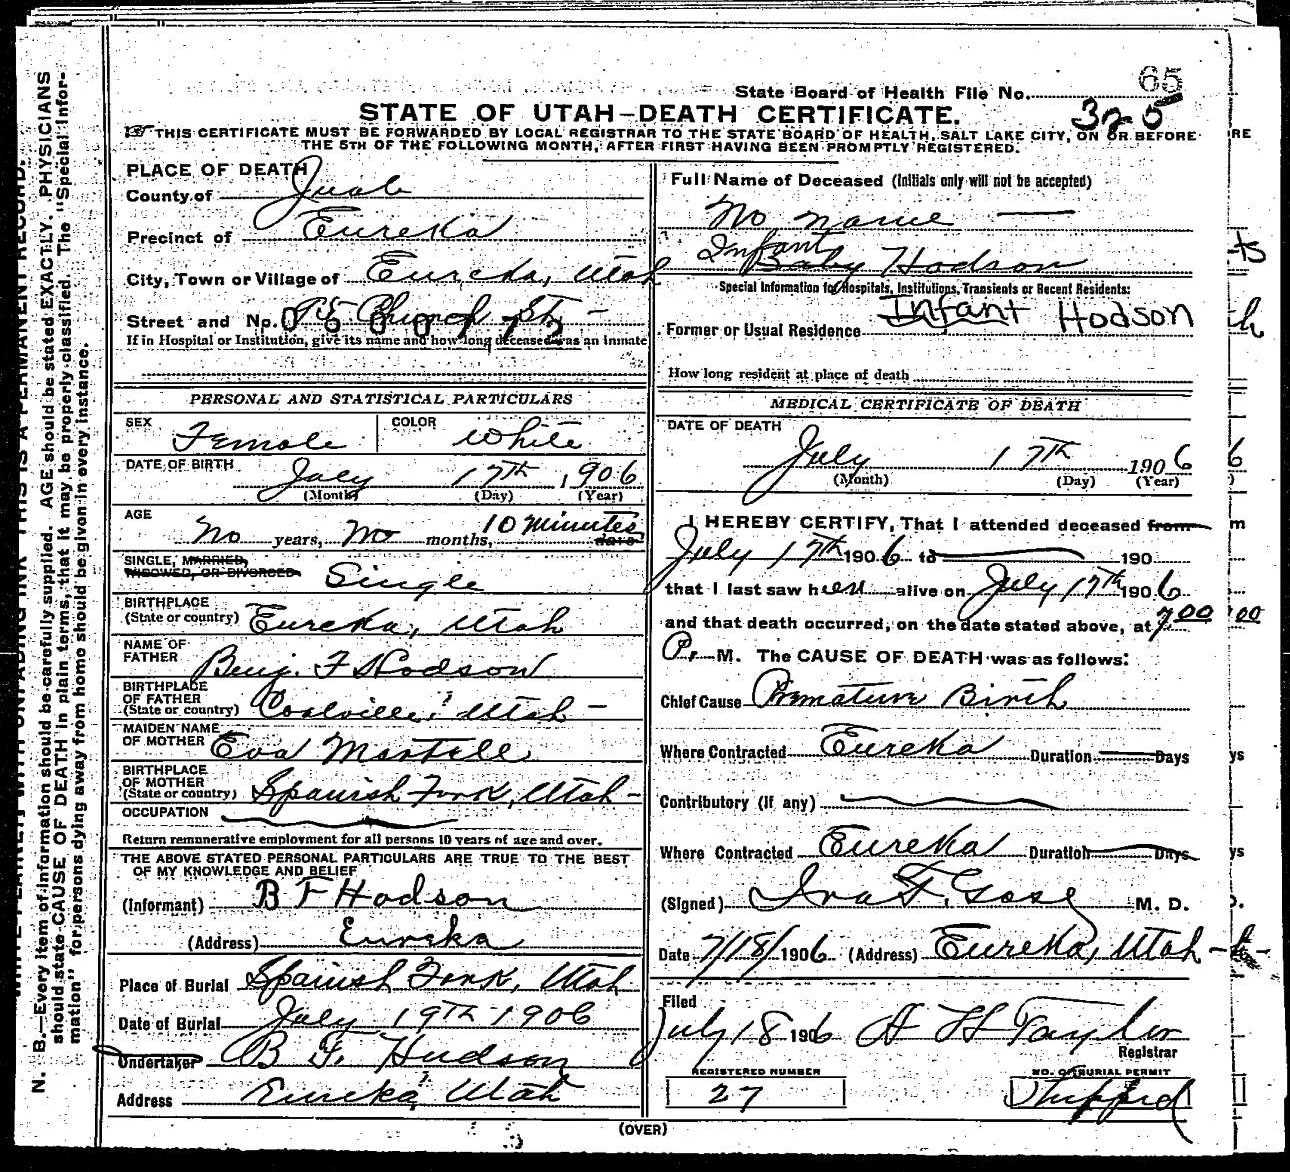 65
State Board of Health File No. 325
STATE OF UTAH-DEATH CERTIFICATE.
THIS CERTIFICATE MUST BE FORWARDED BY LOCAL REGISTRAR TO THE STATE BOARD OF HEALTH, SALT LAKE CITY, ON OR BEFORE
THE 5TH OF THE FOLLOWING MONTH, AFTER FIRST HAVING BEEN PROMPTLY REGISTERED.
PLACE OF DEATH
County of Juab
Precinct of Eureka
City, Town or Village of Eureka, Utah
Street and No. Church St. -
If in Hospital or Institution, give its name and how long deceased was an inmate
PERSONAL AND STATISTICAL PARTICULARS
SEX Female COLOR White
DATE OF BIRTH July 17th, 1906
(Month) (Day) (Year)
AGE No years, No months, 10 Minutes days
SINGLE, MARRIED,
WIDOWED, OR DIVORCED Single
BIRTHPLACE
(State or country) Eureka, Utah
NAME OF
FATHER Benj. F Hodson
BIRTHPLACE
OF FATHER
(State or country) Coalville, Utah -
MAIDEN NAME
OF MOTHER Eva Martell
BIRTHPLACE
OF MOTHER
(State or country) Spanish Fork, Utah -
OCCUPATION
Return remunerative employment for all persons 10 years of age and over.
THE ABOVE STATED PERSONAL PARTICULARS ARE TRUE TO THE BEST
OF MY KNOWLEDGE AND BELIEF
(Informant) B F Hodson
(Address) Eureka
Place of Burial Spanish Fork, Utah
Date of Burial July 19th 1906
Undertaker B F. Hudson
Address Eureka, Utah
Full Name of Deceased (Initials only will not be accepted)
No name
Infant
Baby Hodson
Special Information for Hospitals, Institutions, Transients or Recent Residents:
Infant Hodson
Former or Usual Residence
How long resident at place of death
MEDICAL CERTIFICATE OF DEATH
DATE OF DEATH
July 17th 1906
(Month) (Day) (Year)
I HEREBY CERTIFY, That I attended deceased from
July 17th 1906 to 190
that I last saw her alive on July 17th 1906
and that death occurred, on the date stated above, at 7.00
P. M. The CAUSE OF DEATH was as follows:
Chief Cause Premature Birth
Where Contracted Eureka Duration Days
Contributory (if any)
Where Contracted Eureka Duration Days
(Signed) Ira F. Gose M. D.
Date 7/18/1906 (Address) Eureka, Utah -
Filed
July 18 1906 A H Taylor
Registrar
REGISTERED NUMBER
27
NO. OF BURIAL PERMIT
Shipped
(OVER)
N. B.—Every item of information should be carefully supplied. AGE should be stated EXACTLY. PHYSICIANS
should state CAUSE OF DEATH in plain terms, that it may be properly classified. The "Special Infor-
mation" for persons dying away from home should be given in every instance.